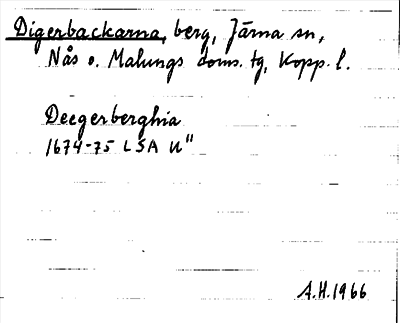 Digerbackarna, berg, Järna sn,
Nås o. Malungs doms. tg, Kopp. l.
Deegerberghia
1674-75 LSA U"
A.H. 1966